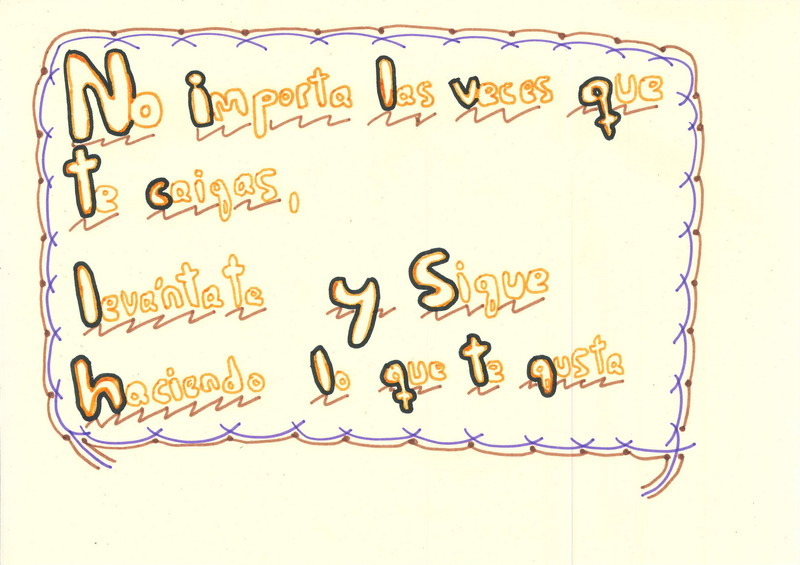 No importa las veces que
te caigas,
levántate y Sigue
haciendo lo que te gusta